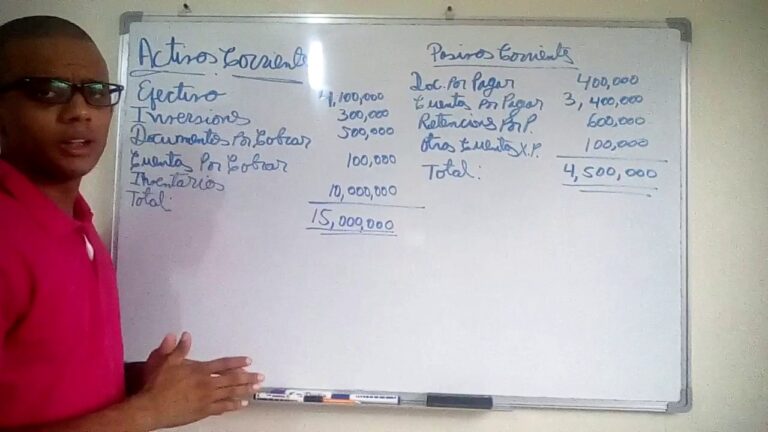 Activos Corriente
Efectivo 4,100,000
Inversions 300,000
Documentos Por Cobrar 500,000
Cuentas Por Cobrar 100,000
Inventarios 10,000,000
Total: 15,000,000
Pasivos Corriente
Doc. Por Pagar 400,000
Cuentas Por Pagar 3,400,000
Retencions Por P. 600,000
Otras Cuentas X.P. 100,000
Total: 4,500,000